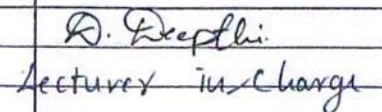 D. Deepthi.
Lecturer in-Charge